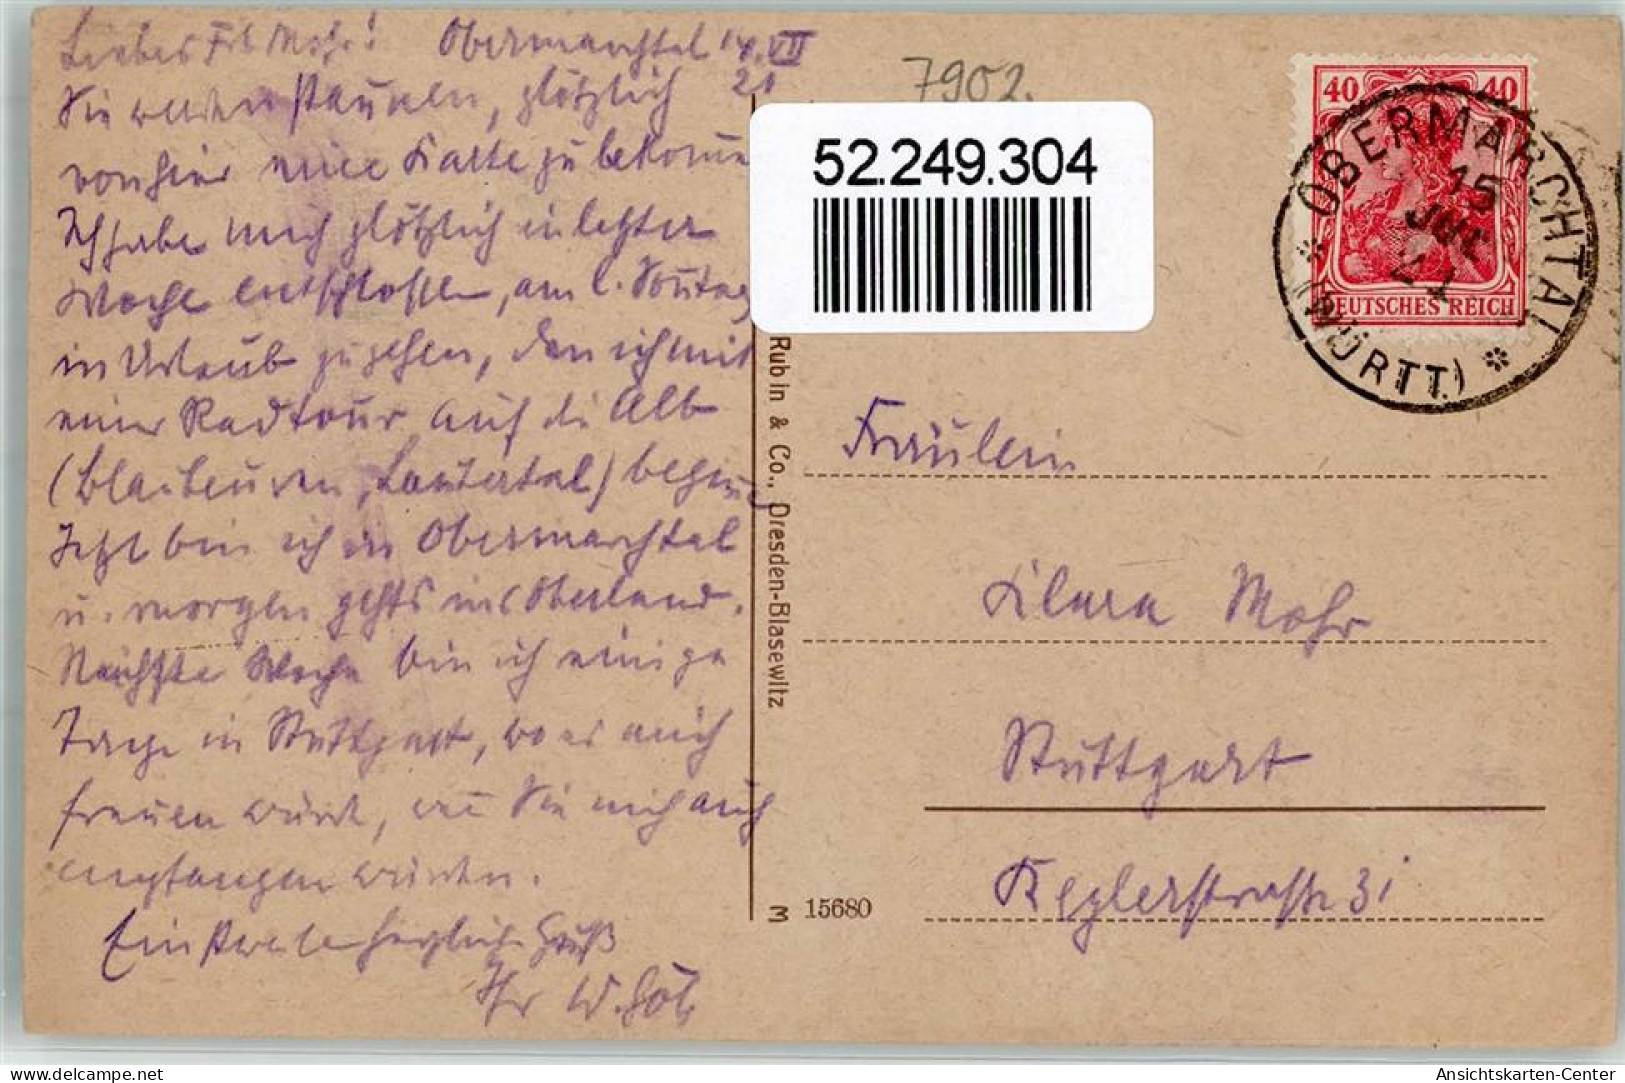 Liebes Frl. Mohr! Obermarchtal 14. VII
21
Sie werden staunen, plötzlich
von hier eine Karte zu bekomme
Ich habe mich plötzlich in letzter
Woche entschlossen, am l. Sontag
in Urlaub zu gehen, den ich mit
einer Radtour auf die Alb
(Blaubeuren, Lautertal) begin
Jetzt bin ich in Obermarchtal
u. morgen gehts ins Oberland.
Nächste Woche bin ich einige
Tage in Stuttgart, wo es mich
freuen würde, we Sie mich auch
empfangen würden.
Ein herzlich Gruß
Ihr W.
7902.
52.249.304
40 40
DEUTSCHES REICH
OBERMARCHTAL
15 JUL 21
(WÜRTT.)
Rubin & Co., Dresden-Blasewitz
M 15680
Fräulein
Klara Mohr
Stuttgart
Keplerstraße 31
delcampe.net
Ansichtskarten-Center